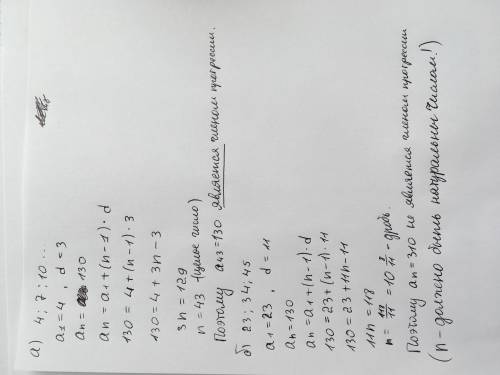 а) 4 ; 7 ; 10 ...
a1 = 4 , d = 3
an = 130
an = a1 + (n-1) · d
130 = 4 + (n-1) · 3
130 = 4 + 3n - 3
3n = 129
n = 43 (целое число)
Поэтому a43 = 130 является членом прогрессии.
б) 23 ; 34, 45
a1 = 23 , d = 11
an = 130
an = a1 + (n-1) · d
130 = 23 + (n-1) · 11
130 = 23 + 11n - 11
11n = 118
n = 118/11 = 10 8/11 - дробь.
Поэтому an = 310 не является членом прогрессии
(n - должно быть натуральным числом!)